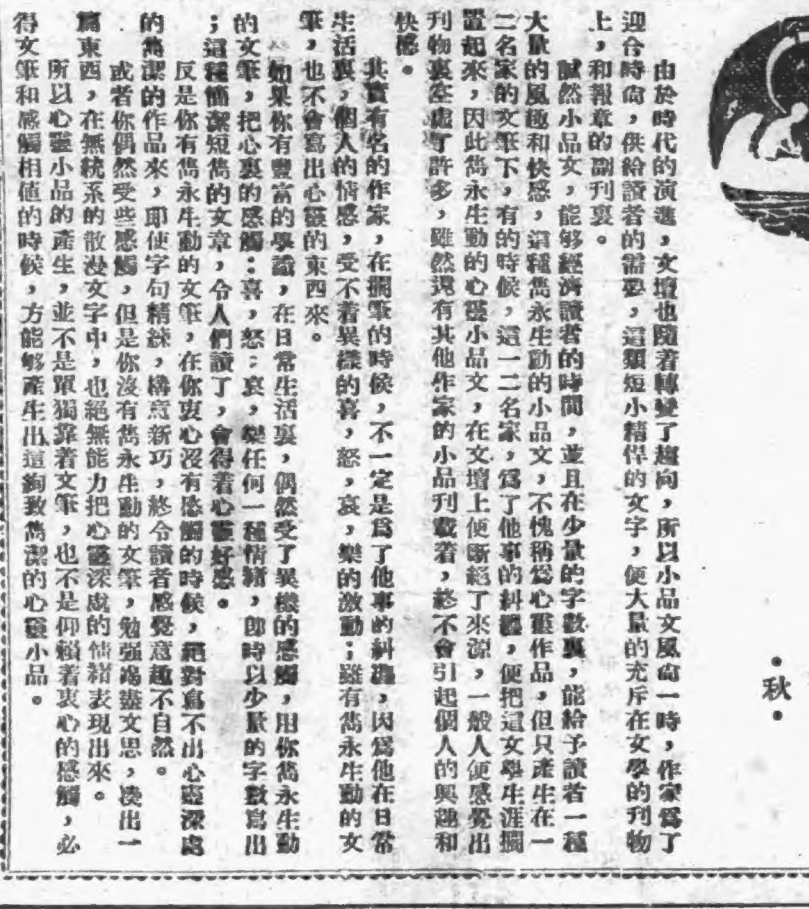 ·秋·
由於時代的演進，文壇也隨着轉變了趨向，所以小品文風尙一時，作家爲了
迎合時尙，供給讀者的需要，這類短小精悍的文字，便大量的充斥在文學的刊物
上，和報章的副刊裏。
誠然小品文，能够經濟讀者的時間，並且在少量的字數裏，能給予讀者一種
大量的風趣和快感，這種雋永生動的小品文，不愧稱爲心靈作品，但只產生在一
二名家的文筆下，有的時候，這一二名家，爲了他事的糾纏，便把這文學生涯擱
置起來，因此雋永生動的心靈小品文，在文壇上便斷絕了來源，一般人便感覺出
刊物裏空虛了許多，雖然還有其他作家的小品刊載着，終不會引起個人的興趣和
快感。
其實有名的作家，在擱筆的時候，不一定是爲了他事的糾纏，因爲他在日常
生活裏，個人的情感，受不着異樣的喜，怒，哀，樂的激動；雖有雋永生動的文
筆，也不會寫出心靈的東西來。
如果你有豐富的學識，在日常生活裏，偶然受了異樣的感觸，用你雋永生動
的文筆，把心裏的感觸：喜，怒：哀，樂任何一種情緖，卽時以少量的字數寫出
；這種簡潔短雋的文章，令人們讀了，會得着心靈好感。
反是你有雋永生動的文筆，在你衷心沒有感觸的時候，絕對寫不出心靈深處
的雋潔的作品來，卽使字句精練，構意新巧，終令讀者感覺意趣不自然。
或者你偶然受些感觸，但是你沒有雋永生動的文筆，勉强竭盡文思，凑出一
篇東西，在無統系的散漫文字中，也絕無能力把心靈深處的情緖表現出來。
所以心靈小品的產生，並不是單獨靠着文筆，也不是仰賴着衷心的感觸，必
得文筆和感觸相値的時候，方能够產生出這絢致雋潔的心靈小品。